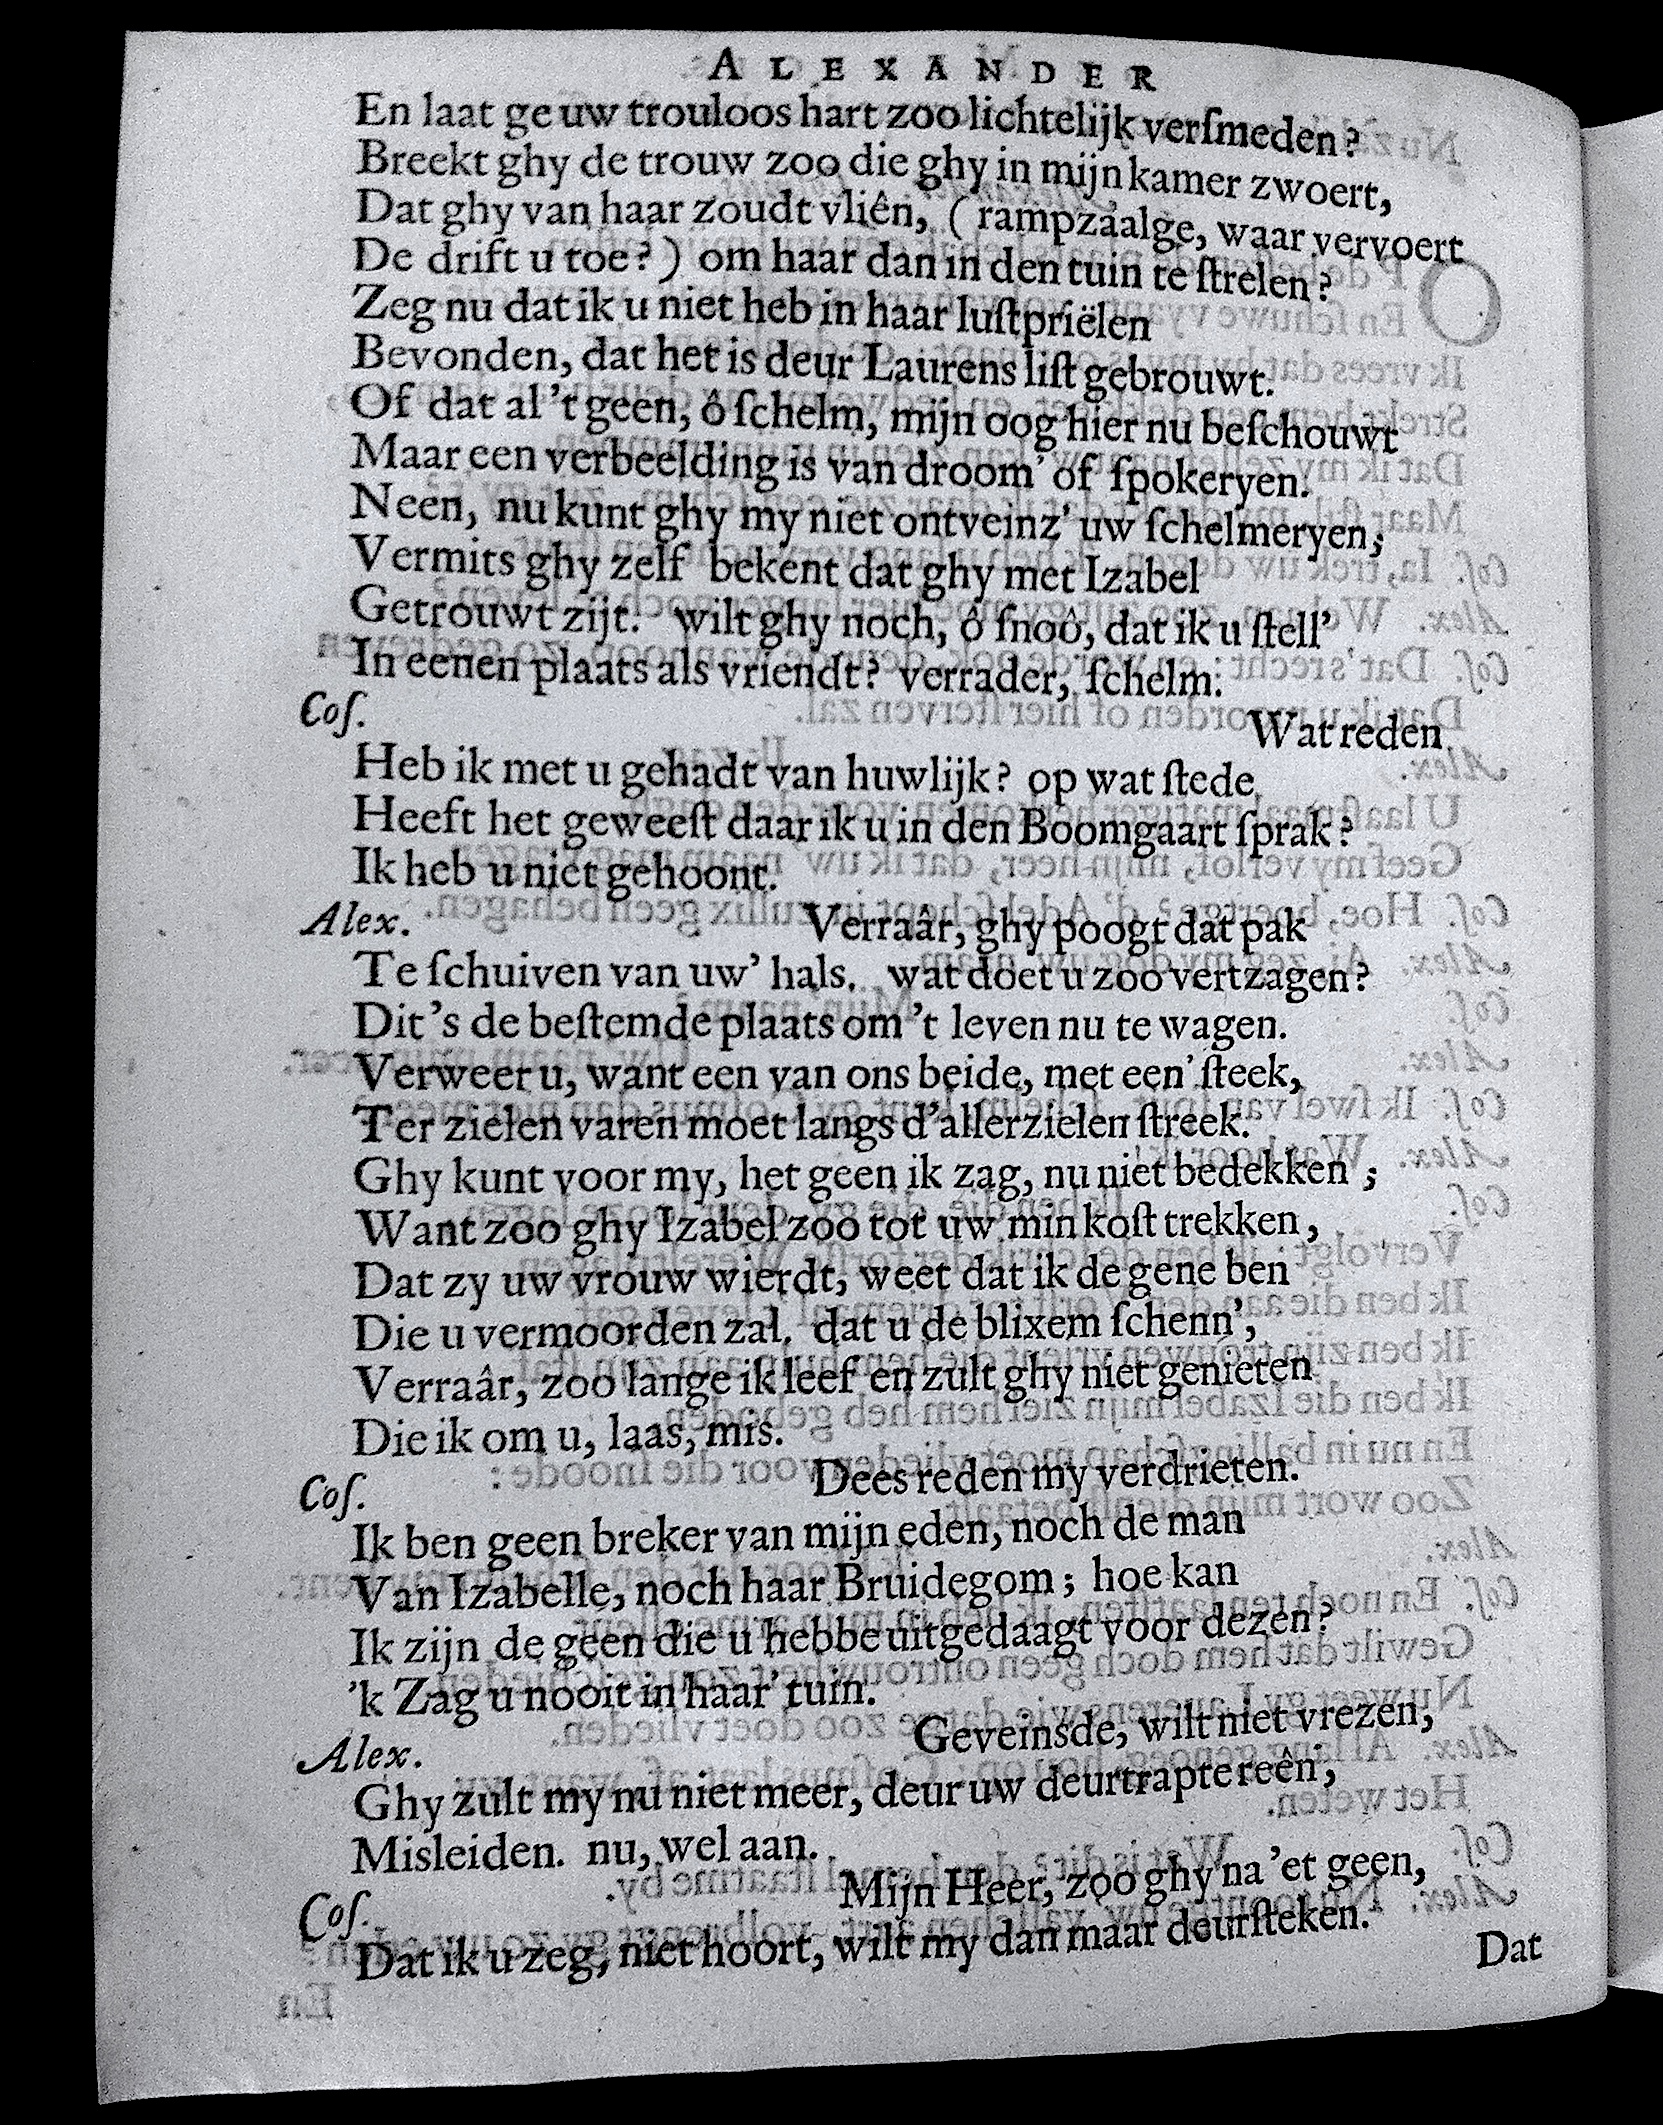 ALEXANDER
En laat ge uw trouloos hart zoo lichtelijk verſmeden?
Breekt ghy de trouw zoo die ghy in mijn kamer zwoert,
Dat ghy van haar zoudt vliên, (rampzaalge, waar vervoert
De drift u toe?) om haar dan in den tuin te ſtrelen?
Zeg nu dat ik u niet heb in haar luſtpriëlen
Bevonden, dat het is deur Laurens liſt gebrouwt.
Of dat al 't geen, ô ſchelm, mijn oog hier nu beſchouwt
Maar een verbeelding is van droom' of ſpokeryen.
Neen, nu kunt ghy my niet ontveinz' uw ſchelmeryen;
Vermits ghy zelf bekent dat ghy met Izabel
Getrouwt zijt. wilt ghy noch, ô ſnoô, dat ik u ſtell'
In eenen plaats als vriendt? verrader, ſchelm.
Coſ. Wat reden
Heb ik met u gehadt van huwlijk? op wat ſtede
Heeft het geweeſt daar ik u in den Boomgaart ſprak?
Ik heb u niet gehoont.
Alex. Verraâr, ghy poogt dat pak
Te ſchuiven van uw' hals. wat doet u zoo vertzagen?
Dit 's de beſtemde plaats om 't leven nu te wagen.
Verweer u, want een van ons beide, met een' ſteek,
Ter zielen varen moet langs d'allerzielen ſtreek.
Ghy kunt voor my, het geen ik zag, nu niet bedekken;
Want zoo ghy Izabel zoo tot uw min koſt trekken,
Dat zy uw vrouw wierdt, weet dat ik de gene ben
Die u vermoorden zal. dat u de blixem ſchenn',
Verraâr, zoo lange ik leef en zult ghy niet genieten
Die ik om u, laas, mis.
Coſ. Dees reden my verdrieten.
Ik ben geen breker van mijn eden, noch de man
Van Izabelle, noch haar Bruidegom; hoe kan
Ik zijn de geen die u hebbe uitgedaagt voor dezen?
'k Zag u nooit in haar' tuin.
Alex. Geveinsde, wilt niet vrezen,
Ghy zult my nu niet meer, deur uw deurtrapte reên,
Misleiden. nu, wel aan.
Coſ. Mijn Heer, zoo ghy na 'et geen,
Dat ik u zeg, niet hoort, wilt my dan maar deurſteken.
Dat